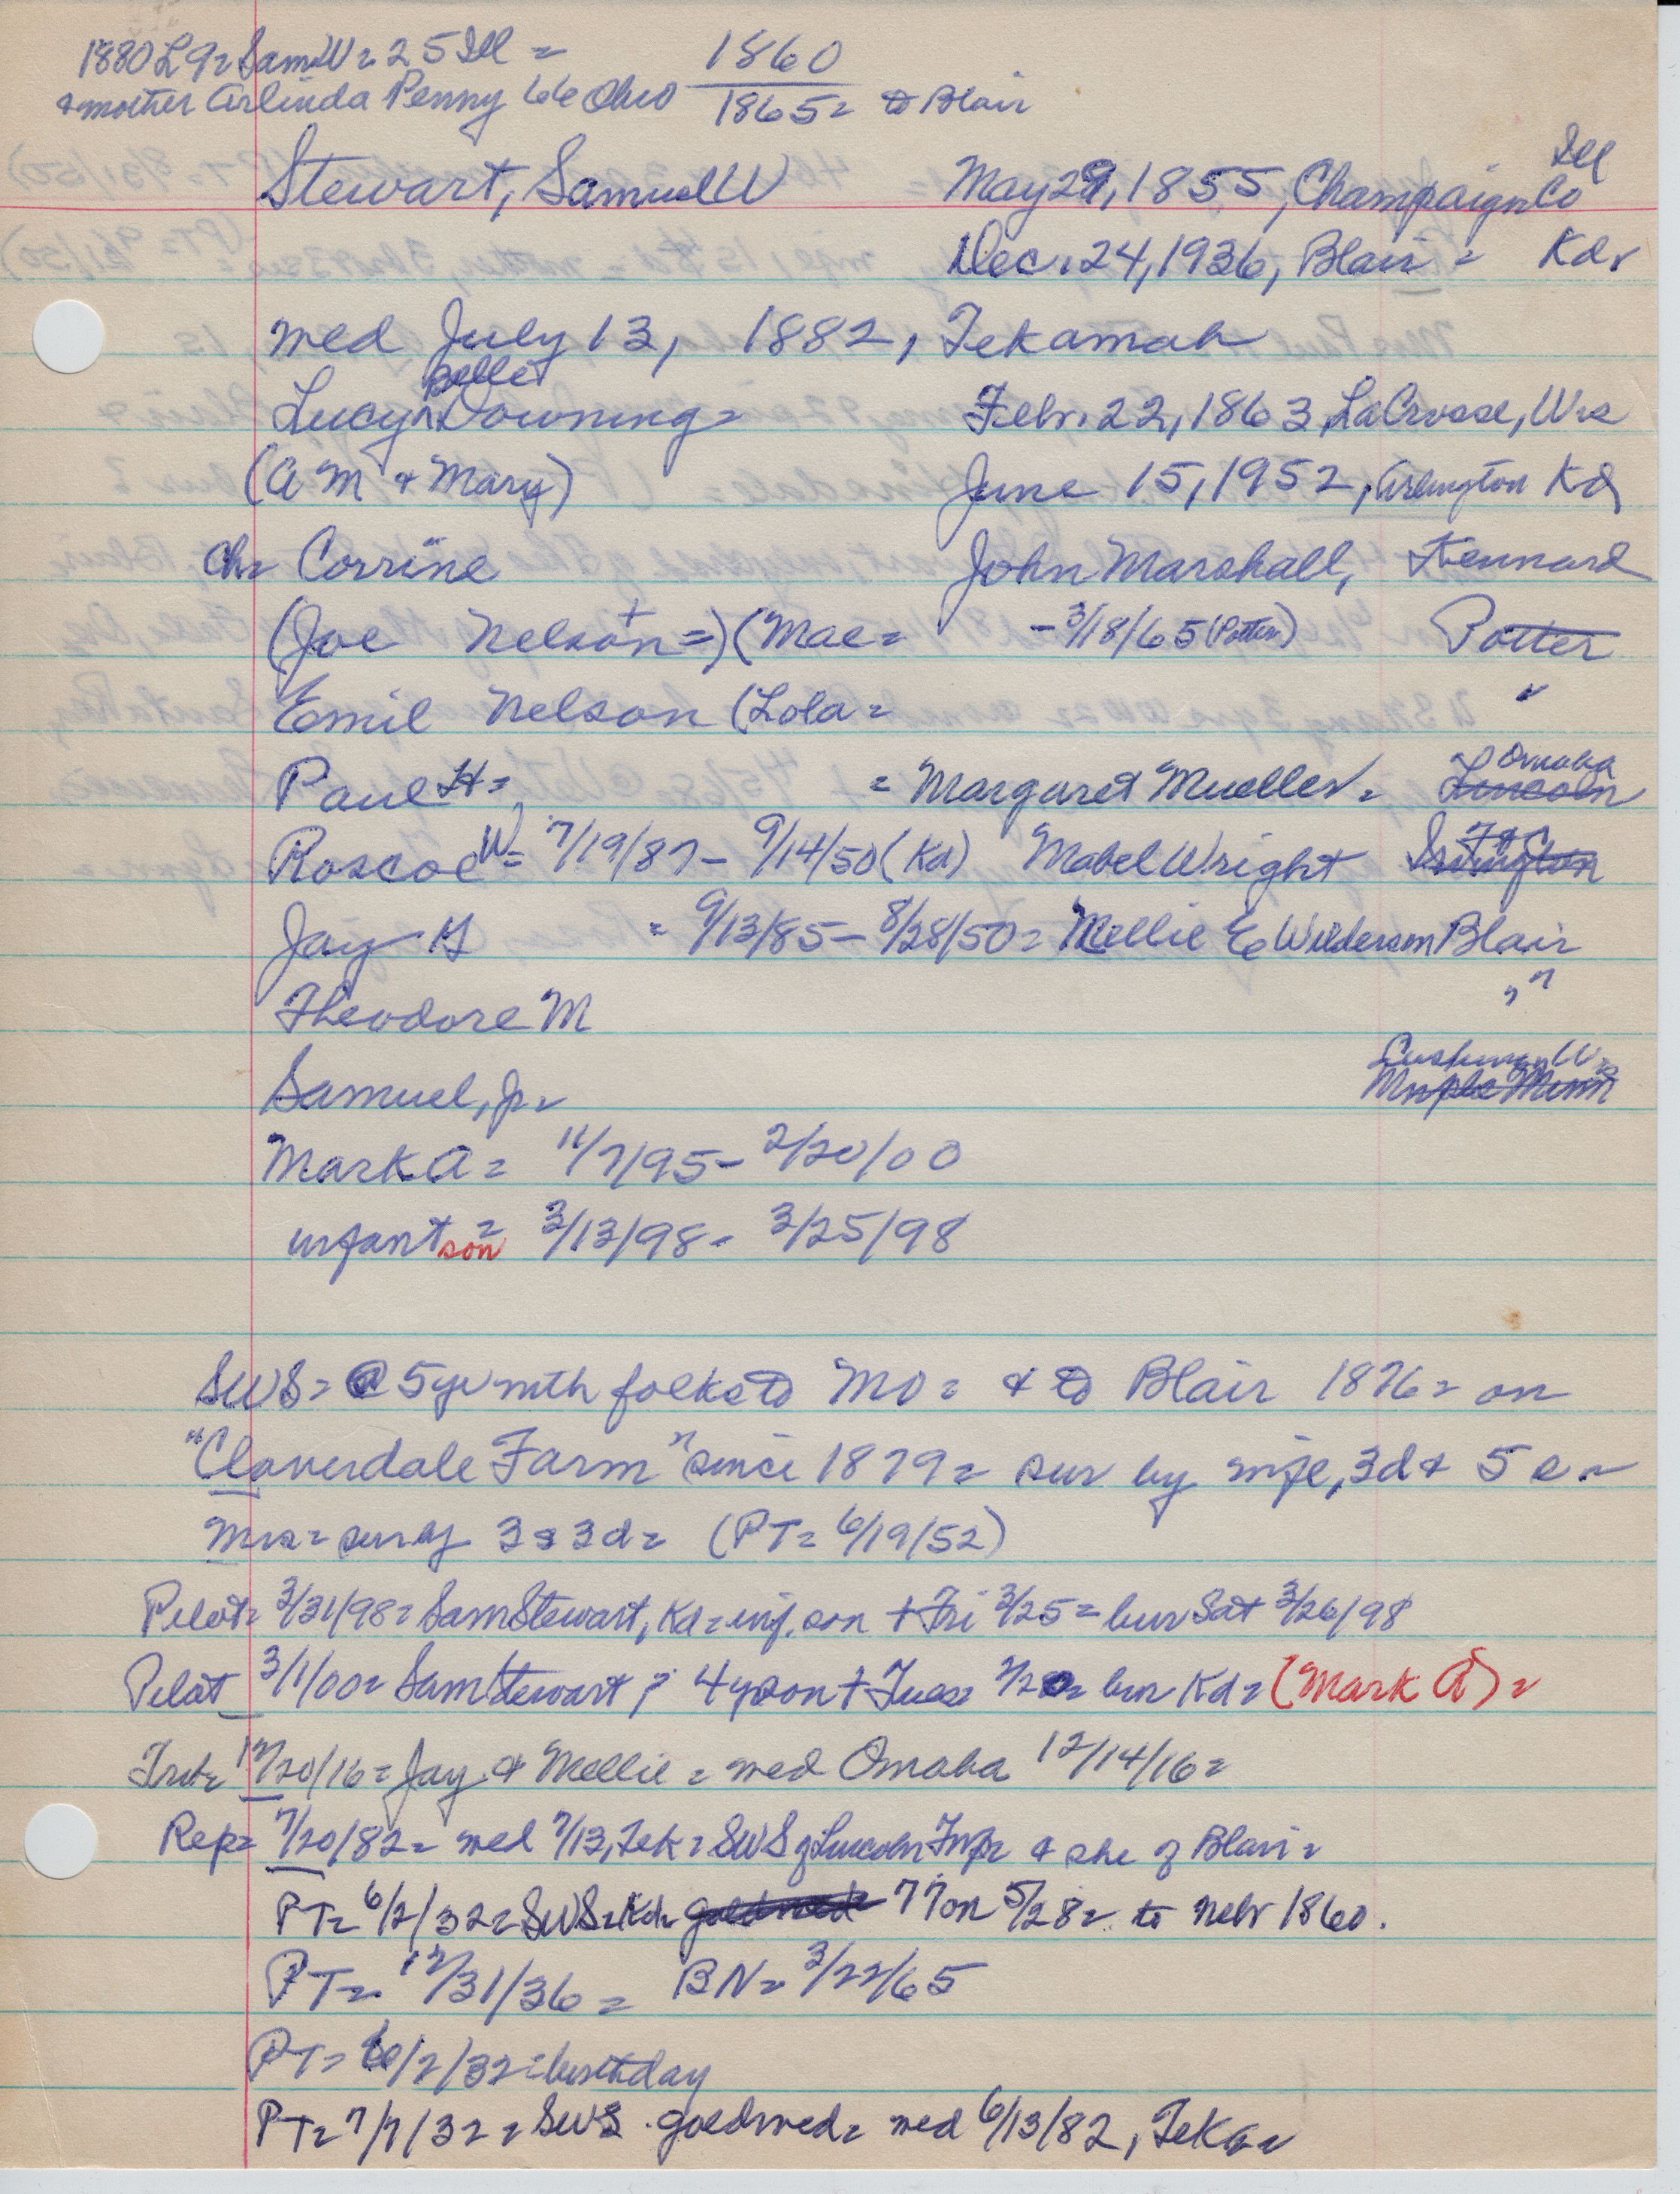 1880 L 9= Sam W= 25 Ill =
& mother Arlinda Penny 66 Ohio
1860
1865= to Blair
Stewart, Samuel W May 29, 1855, Champaign Co Ill
Dec. 24, 1936, Blair = Kd.
med July 13, 1882, Tekamah
Lucy Belle Downing= Febr. 22, 1863 LaCrosse, Wis
(A M & Mary) June 15, 1952, Arlington Kd
Ch= Corrine John Marshall, Kennard
(Joe Nelson +=) (Mae= - 3/18/65 (Potter) Potter
Emil Nelson (Lola= "
Paul H= = Margaret Mueller= Omaha Lincoln
Roscoe W= 7/19/87 - 9/14/50 (Kd) Mabel Wright Ft C Irvington
Jay G = 9/13/85 - 8/28/50= Mellie E Wilderson Blair
Theodore M " "
Samuel, Jr= Cushing
Mark A= 11/7/95 - 2/20/00
infant son= 3/13/98 - 3/25/98
SWS= @ 5 yr with folks to Mo= & to Blair 1876= on
"Cloverdale Farm" since 1879= sur by wife, 3d & 5 s=
Mrs= sur by 3 s 3d= (PT= 6/19/52)
Pilot= 3/31/98= Sam Stewart, Kd= inf. son + Fri 3/25= bur Sat 3/26/98
Pilot 3/1/00= Sam Stewart; 4 y son + Tues 2/20= bur Kd= (Mark A)=
Trib= 12/20/16= Jay & Mellie= med Omaha 12/14/16=
Rep= 7/20/82= med 7/13, Tek= SWS of Lincoln Twp & she of Blair=
PT= 6/2/32= SWS= Kd= goldwed 77 on 5/28= to Nebr 1860.
PT= 12/31/36= BN= 3/22/65
PT= 6/2/32= birthday
PT= 7/7/32= SWS. goldwed= med 6/13/82, Teka=